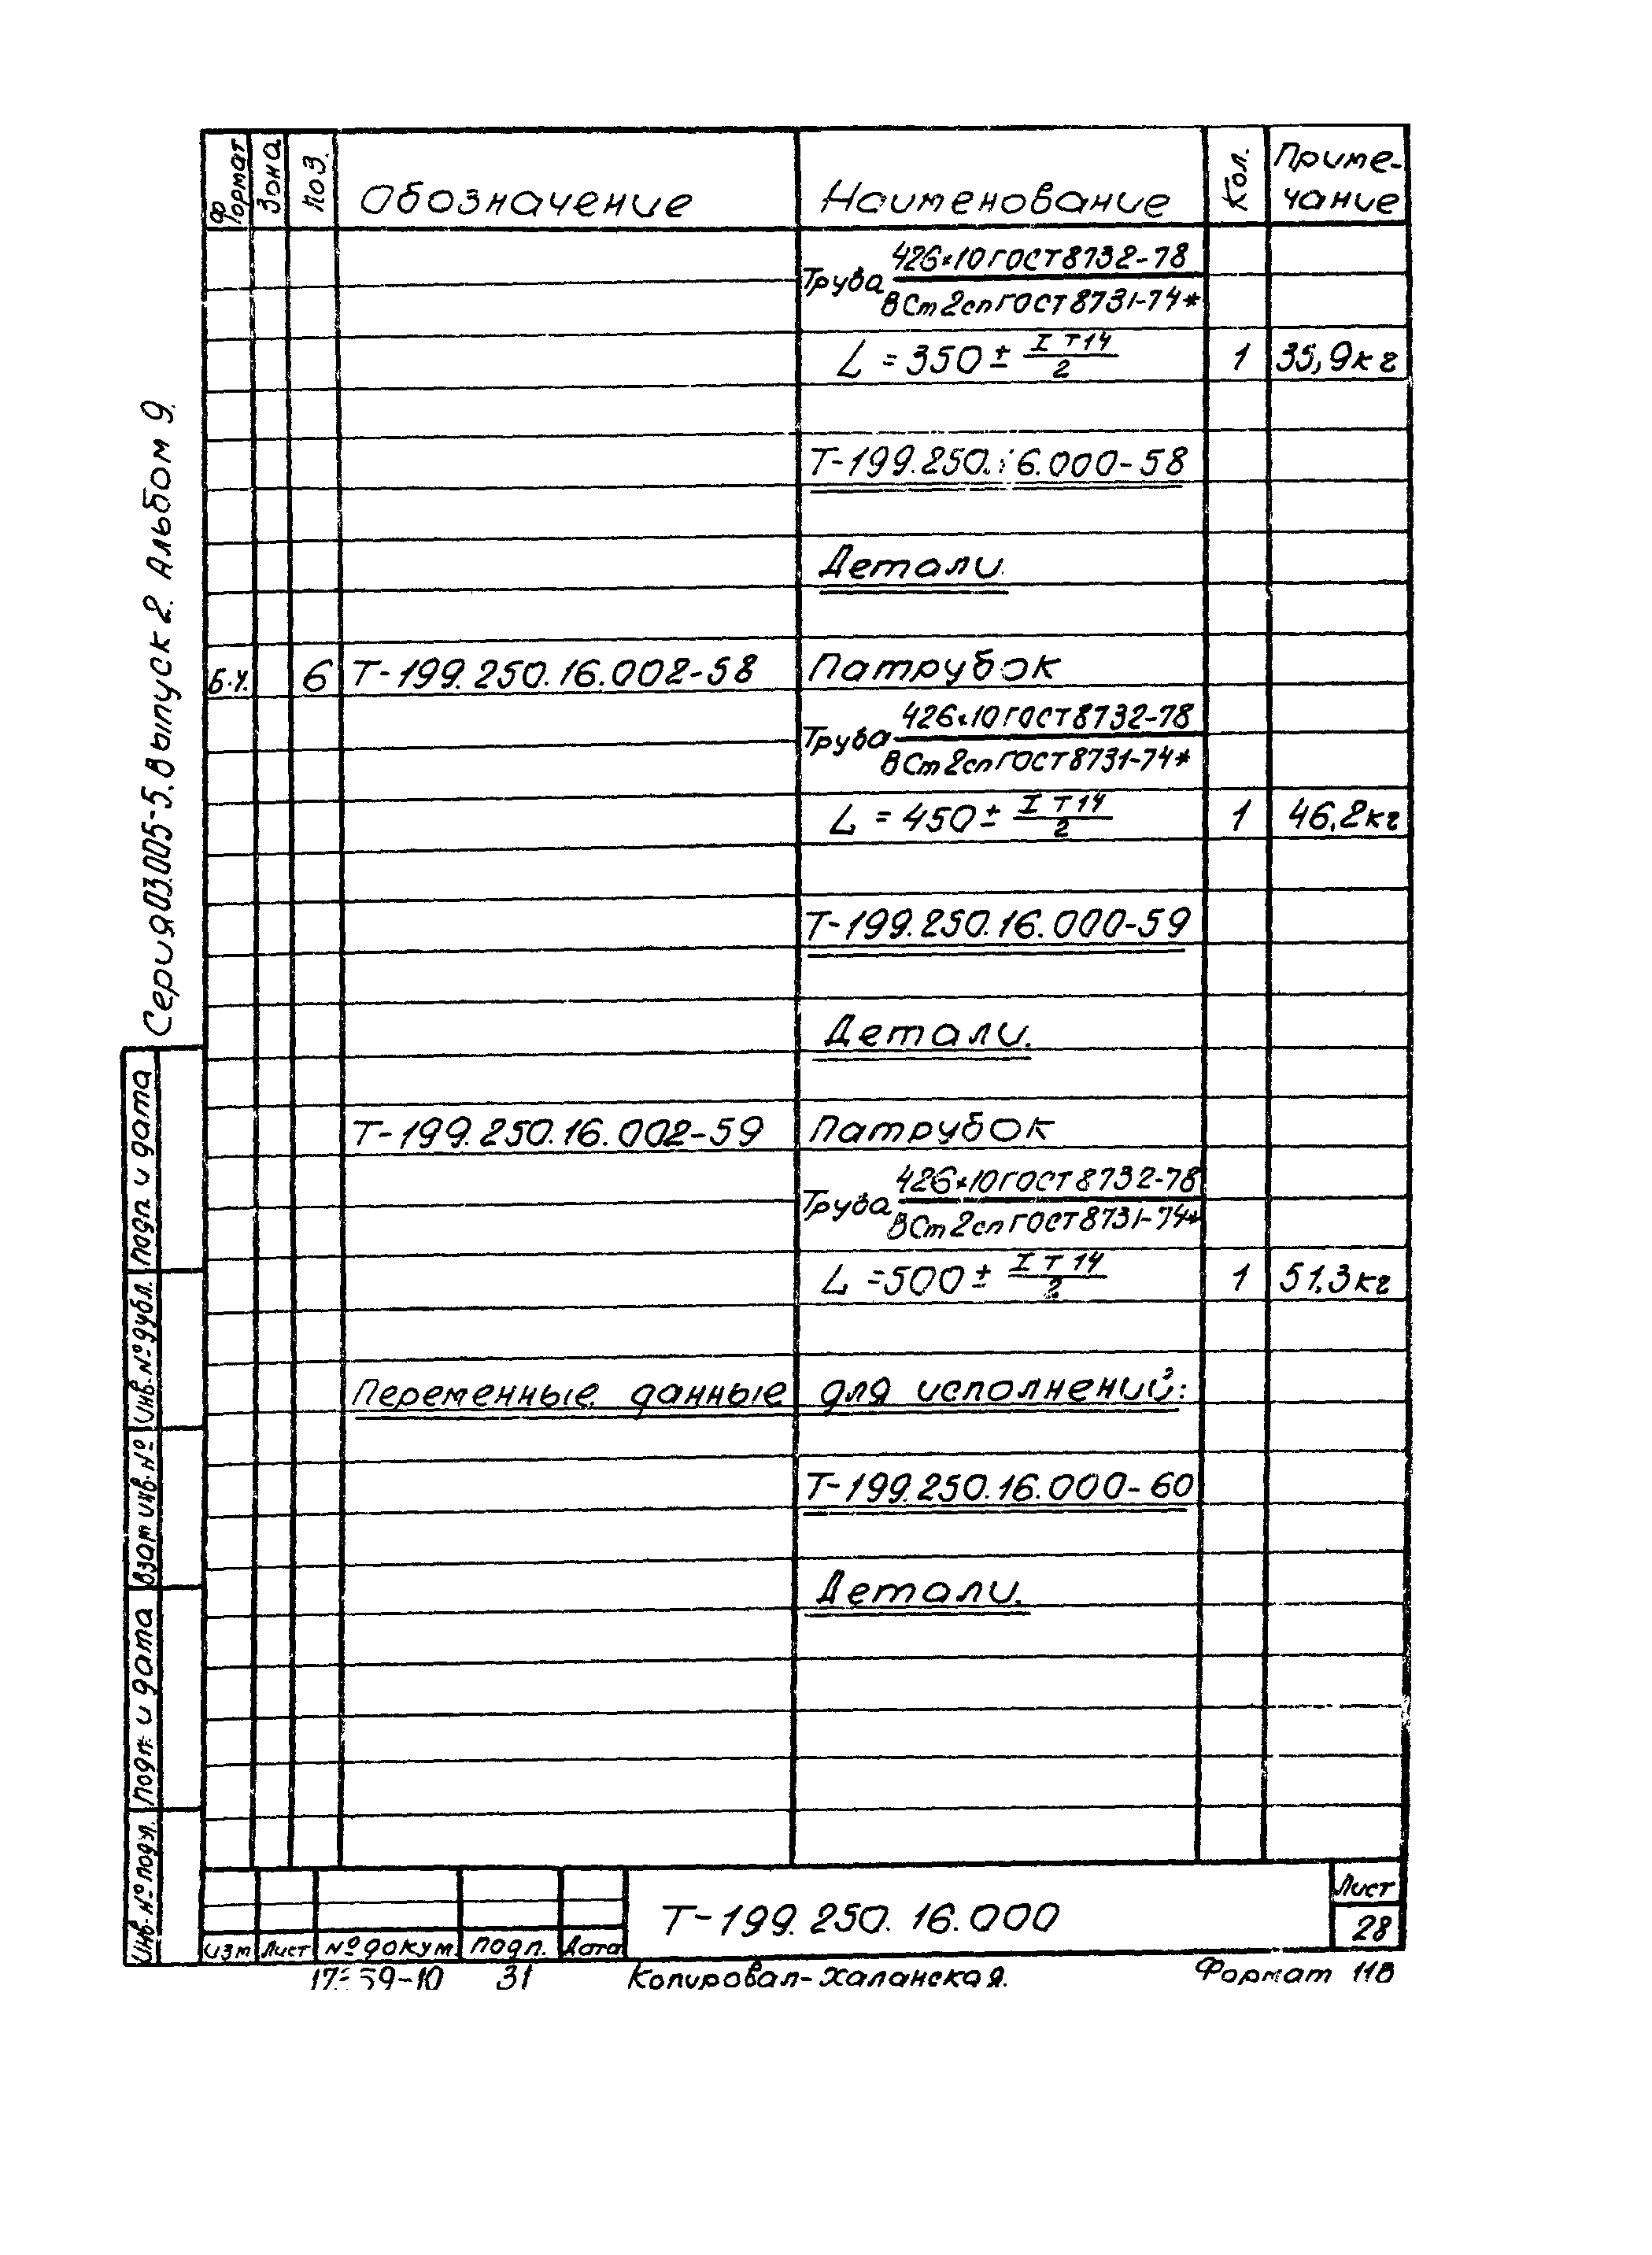 Формат Зона Поз. Обозначение Наименование Кол. Приме-
чание
426×10 ГОСТ 8732-78
Труба
ВСт2сп ГОСТ 8731-74*
L = 350 ± IT14/2 1 35,9 кг
Т-199.250.16.000-58
Детали.
Б.Ч. 6 Т-199.250.16.002-58 Патрубок
426×10 ГОСТ 8732-78
Труба
ВСт2сп ГОСТ 8731-74*
L = 450 ± IT14/2 1 46,2 кг
Т-199.250.16.000-59
Детали.
Т-199.250.16.002-59 Патрубок
426×10 ГОСТ 8732-78
Труба
ВСт2сп ГОСТ 8731-74*
L = 500 ± IT14/2 1 51,3 кг
Переменные данные для исполнений:
Т-199.250.16.000-60
Детали.
Серия 03.005-5. Выпуск 2. Альбом 9.
Подп. и дата
Инв. № дубл.
Взам инв. №
Подп. и дата
Инв. № подл.
Изм Лист № докум. Подп. Дата
Т-199.250.16.000
Лист
28
31 Копировал-Халанская. Формат 11В